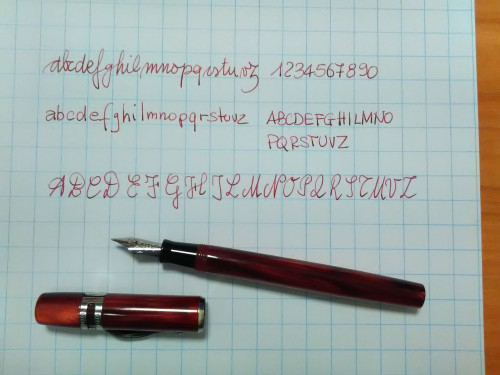 abcdefghilmnopqrstuvz 1234567890
abcdefghilmnopqrstuvz ABCDEFGHILMNO
PQRSTUVZ
ABCDEFGHILMNOPQRSTUVZ